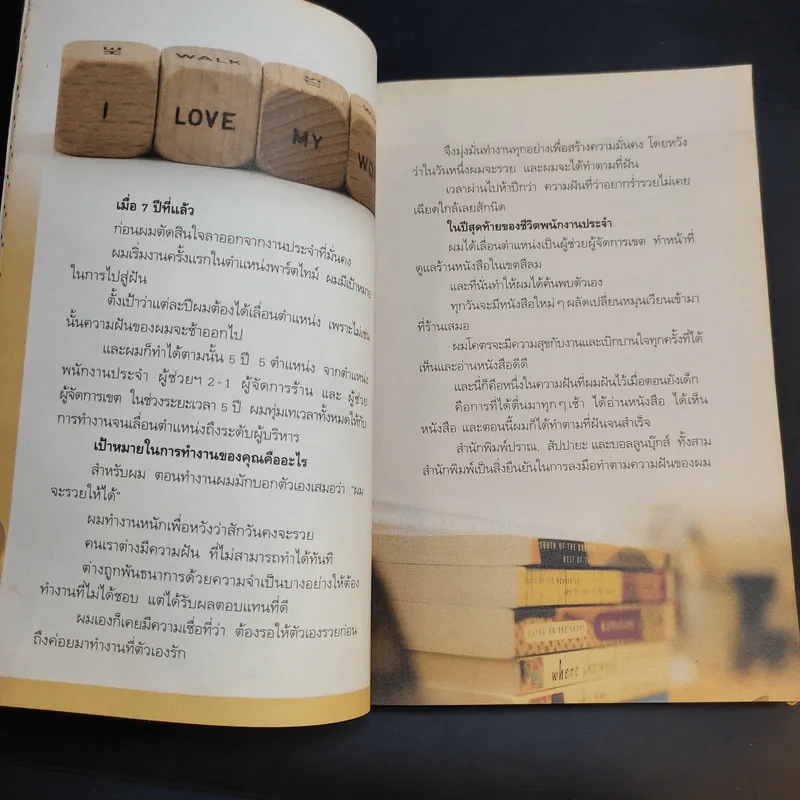 WALK
I LOVE MY WO
เมื่อ 7 ปีที่แล้ว
ก่อนผมตัดสินใจลาออกจากงานประจำที่มั่นคง
ผมเริ่มงานครั้งแรกในตำแหน่งพาร์ตไทม์ ผมมีเป้าหมาย
ในการไปสู่ฝัน
ตั้งเป้าว่าแต่ละปีผมต้องได้เลื่อนตำแหน่ง เพราะไม่เช่น
นั้นความฝันของผมจะช้าออกไป
และผมก็ทำได้ตามนั้น 5 ปี 5 ตำแหน่ง จากตำแหน่ง
พนักงานประจำ ผู้ช่วยฯ 2-1 ผู้จัดการร้าน และ ผู้ช่วย
ผู้จัดการเขต ในช่วงระยะเวลา 5 ปี ผมทุ่มเทเวลาทั้งหมดให้กับ
การทำงานจนเลื่อนตำแหน่งถึงระดับผู้บริหาร
เป้าหมายในการทำงานของคุณคืออะไร
สำหรับผม ตอนทำงานผมมักบอกตัวเองเสมอว่า “ผม
จะรวยให้ได้”
ผมทำงานหนักเพื่อหวังว่าสักวันคงจะรวย
คนเราต่างมีความฝัน ที่ไม่สามารถทำได้ทันที
ต่างถูกพันธนาการด้วยความจำเป็นบางอย่างให้ต้อง
ทำงานที่ไม่ได้ชอบ แต่ได้รับผลตอบแทนที่ดี
ผมเองก็เคยมีความเชื่อที่ว่า ต้องรอให้ตัวเองรวยก่อน
ถึงค่อยมาทำงานที่ตัวเองรัก
จึงมุ่งมั่นทำงานทุกอย่างเพื่อสร้างความมั่นคง โดยหวัง
ว่าในวันหนึ่งผมจะรวย และผมจะได้ทำตามที่ฝัน
เวลาผ่านไปห้าปีกว่า ความฝันที่ว่าอยากร่ำรวยไม่เคย
เฉียดใกล้เลยสักนิด
ในปีสุดท้ายของชีวิตพนักงานประจำ
ผมได้เลื่อนตำแหน่งเป็นผู้ช่วยผู้จัดการเขต ทำหน้าที่
ดูแลร้านหนังสือในเขตสีลม
และที่นั่นทำให้ผมได้ค้นพบตัวเอง
ทุกวันจะมีหนังสือใหม่ๆ ผลัดเปลี่ยนหมุนเวียนเข้ามา
ที่ร้านเสมอ
ผมโคตรจะมีความสุขกับงานและเบิกบานใจทุกครั้งที่ได้
เห็นและอ่านหนังสือดีดี
และนี่ก็คือหนึ่งในความฝันที่ผมฝันไว้เมื่อตอนยังเด็ก
คือการที่ได้ตื่นมาทุกๆ เช้า ได้อ่านหนังสือ ได้เห็น
หนังสือ และตอนนี้ผมก็ได้ทำตามที่ฝันจนสำเร็จ
สำนักพิมพ์ปราณ, สัปปายะ และบอลลูนบุ๊กส์ ทั้งสาม
สำนักพิมพ์เป็นสิ่งยืนยันในการลงมือทำตามความฝันของผม
SOUTH OF THE BO
WEST OF
where